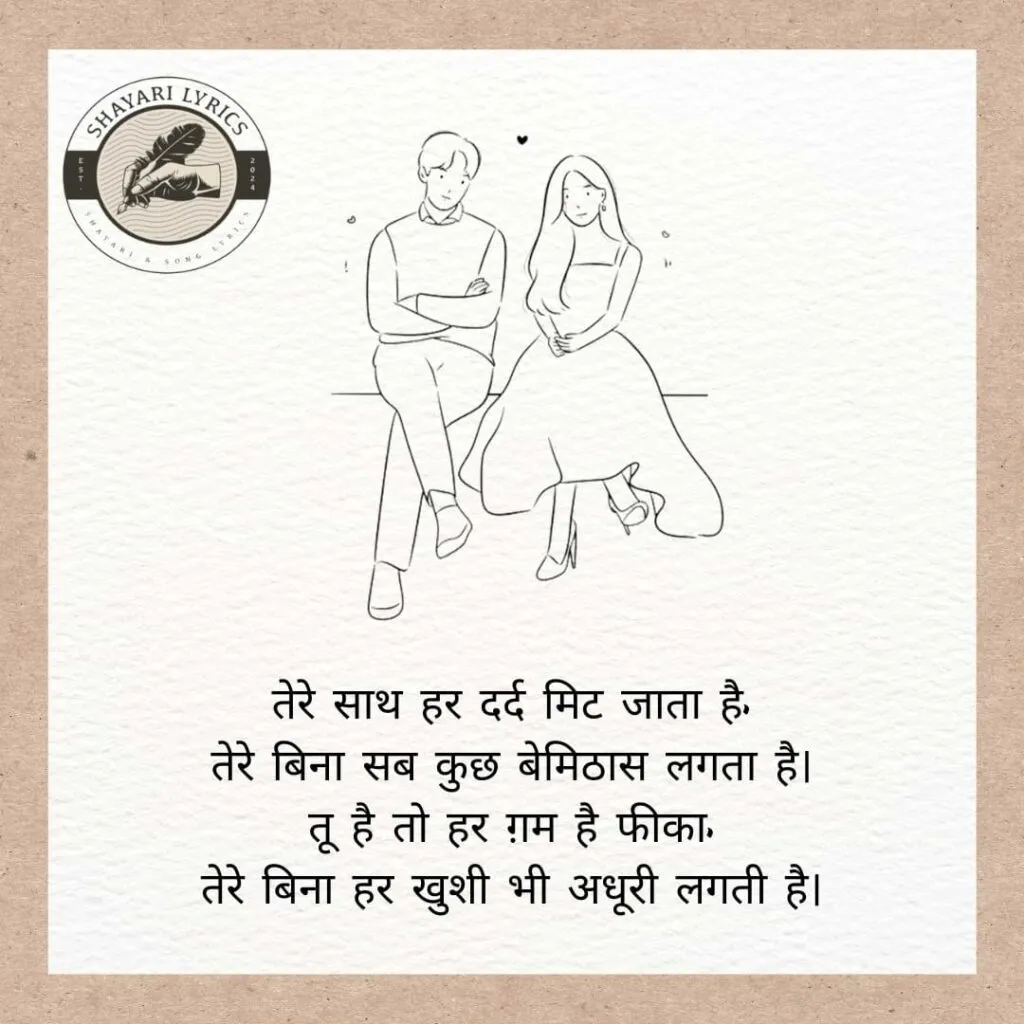 SHAYARI LYRICS
EST. 2024
SHAYARI & SONG LYRICS
तेरे साथ हर दर्द मिट जाता है,
तेरे बिना सब कुछ बेमिठास लगता है।
तू है तो हर ग़म है फीका,
तेरे बिना हर खुशी भी अधूरी लगती है।